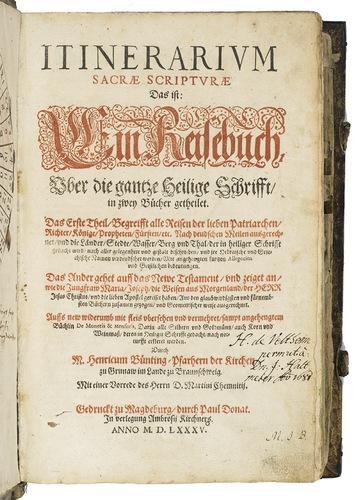 ITINERARIVM
SACRÆ SCRIPTVRÆ
Das ist:
Ein Reisebuch,
Vber die gantze Heilige Schrifft/
in zwey Bücher getheilet.
Das Erste Theil/ Begreifft alle Reisen der lieben Patriarchen/
Richter/ Könige/ Propheten/ Fürsten/ etc. Nach deudschen Meilen ausgerech-
net/ vnd die Länder/ Stedte/ Wasser/ Berg vnd Thal/ der in heiliger Schrifft
gedacht wird/ nach aller gelegenheit vnd gestalt beschrieben/ vnd jre Hebreische vnd Griechische
Namen verdeudschet worden/ Mit angehengten kurtzen Allegorien
vnd Geistlichen bedeutungen.
Das Ander gehet auff das Newe Testament/ vnd zeiget an/
wie die Jungfraw Maria/ Joseph/ die Weisen aus Morgenland/ der HERR
Jesus Christus/ vnd die lieben Apostel gereiset haben/ Aus den glaubwirdigsten vnd fürnemb-
sten Büchern zusamen gezogen/ vnd Geometrischer weise ausgerechnet.
Auffs new widerumb mit fleis vbersehen vnd vermehret/ sampt angehengtem
Büchlin De Monetis & mensuris, Darin alle Silbern vnd Goltmüntz/ auch Korn vnd
Weinmaß/ deren in Heiliger Schrifft gedacht/ nach not-
turfft erkleret werden.
Durch
M. Henricum Bünting/ Pfarhern der Kirchen
zu Grunaw im Lande zu Braunschweig.
Mit einer Vorrede des Herrn D. Martini Chemnitij.
Gedruckt zu Magdeburg/ durch Paul Donat.
In verlegung Ambrosij Kirchners.
ANNO M. D. LXXXV.
H. de Veltheim
M. J. B.